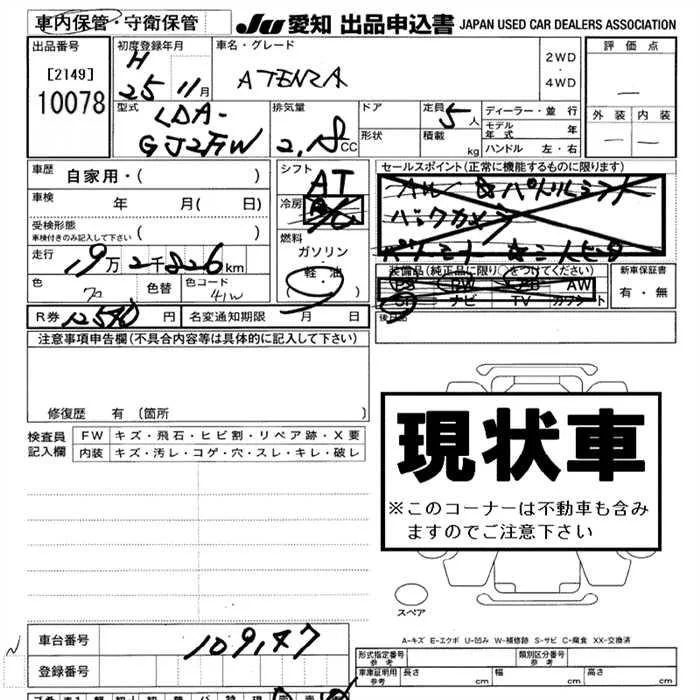 車内保管・守衛保管
JU 愛知 出品申込書 JAPAN USED CAR DEALERS ASSOCIATION
出品番号
[2149]
10078
初度登録年月
H
25 11月
車名・グレード
ATENZA
2WD
・
4WD
評価点
—
外装 内装
— —
型式
LDA-
GJ2FW
排気量
2.18 CC
ドア
形状
定員 5人
積載 kg
ディーラー・並行
モデル年式 年
ハンドル 左・右
車歴 自家用・( )
車検 年 月( 日)
受検形態
車検付きのみ記入して下さい ( )
走行 19万2千826km
色 色替 色コード
41W
R券 12590円 名変通知期限 月 日
シフト
AT
冷房
燃料
ガソリン
・
軽・油
( )
セールスポイント(正常に機能するものに限ります)
バックカメラ
装備品(純正品に限り○をつけてください)
PS PW AB AW
SR ナビ TV カワシート
後日品
新車保証書
有・無
注意事項申告欄(不具合内容等は具体的に記入して下さい)
修復歴 有 (箇所 )
検査員
記入欄
FW キズ・飛石・ヒビ割・リペア跡・X要
内装 キズ・汚レ・コゲ・穴・スレ・キレ・破レ
現状車
※このコーナーは不動車も含み
ますのでご注意下さい
スペア
A-キズ E-エクボ U-凹み W-補修跡 S-サビ C-腐食 XX-交換済
車台番号 109147
登録番号
型式指定番号 参考
類別区分番号 参考
車庫証明用 参考 長さ cm 幅 cm 高さ cm